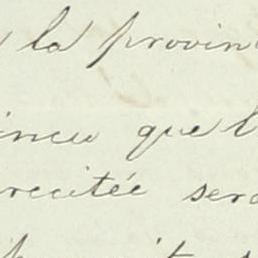 la provin
incu que l
recitée sera